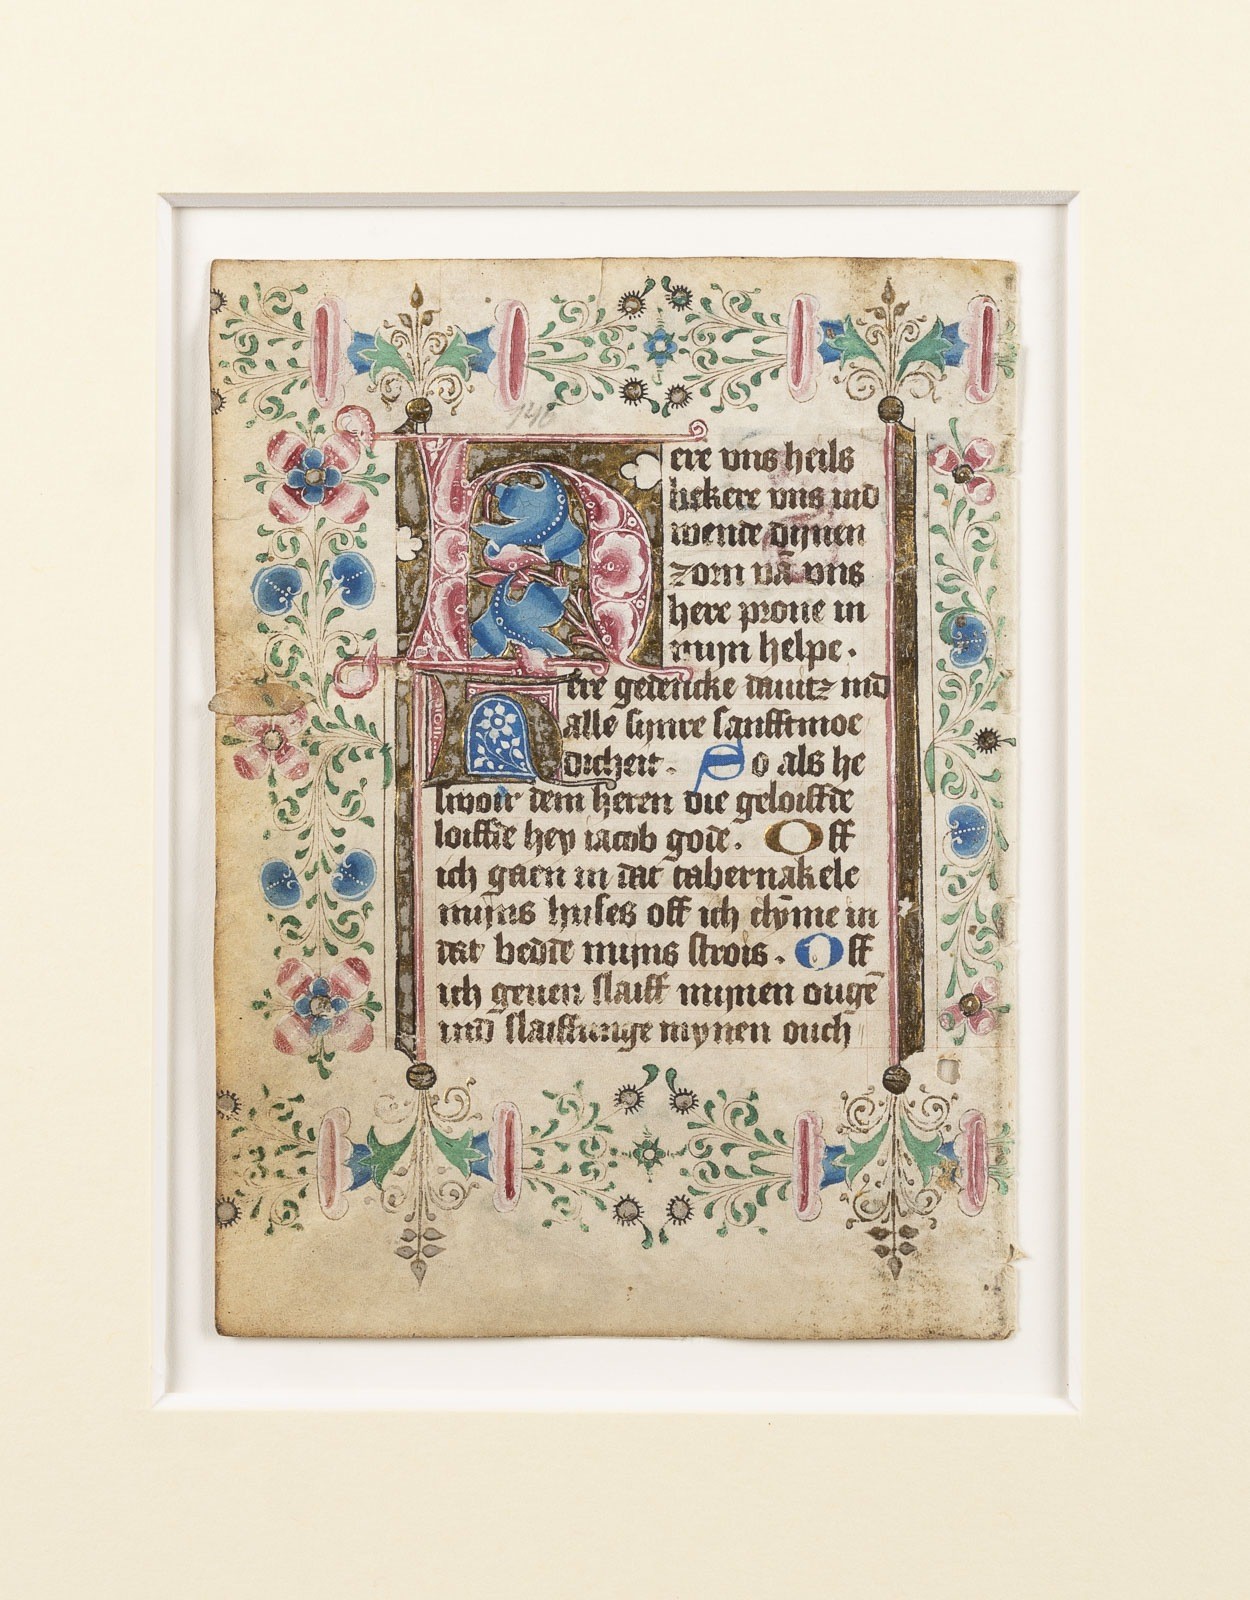 148
Here vns heils
bekere vns ind
wende dynen
zorn vā vns
here proue in
myn helpe.
Here gedencke dauitz ind
alle synre sanfftmoe
dicheit. So als he
swoir dem heren die geloiffde
loiffde hey iacob gode. Off
ich gaen in dat tabernakele
myns huses off ich clȳme in
dat bedde myns strois. Off
ich geuen slaiff mynen ougē
ind slaiffunge mynen ouch